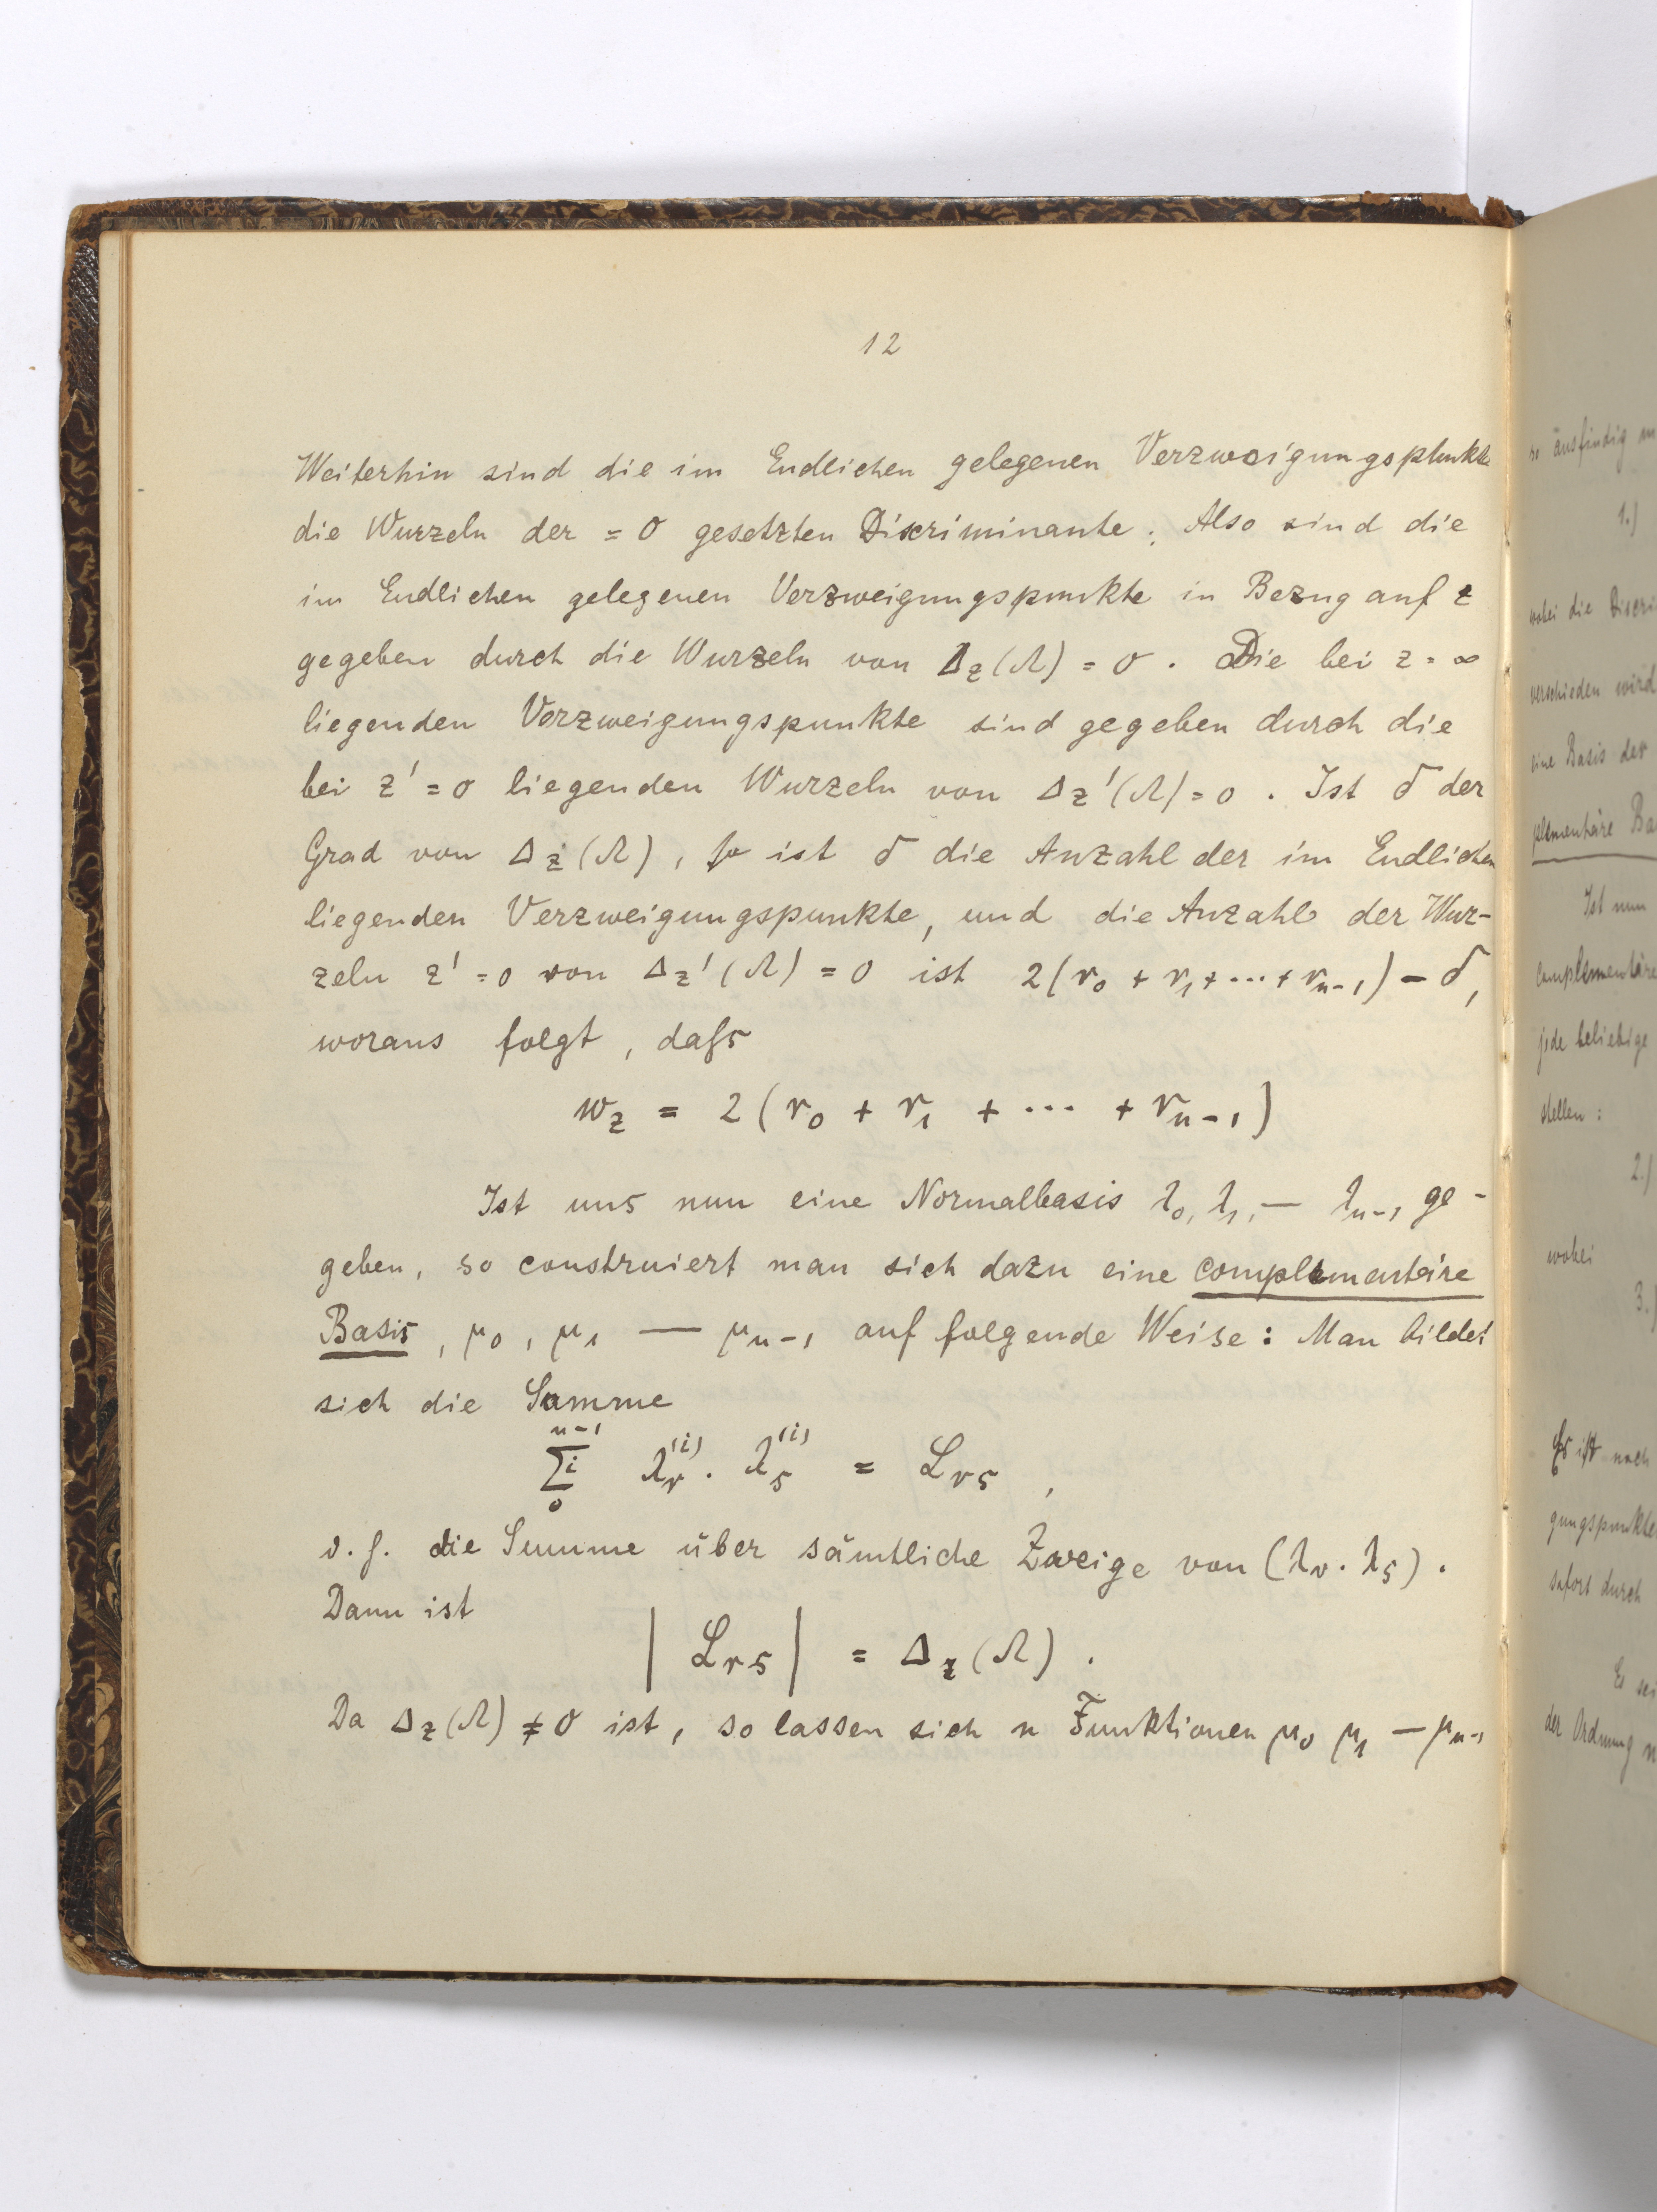 12
Weiterhin sind die im Endlichen gelegenen Verzweigungspunkte
die Wurzeln der = 0 gesetzten Discriminante. Also sind die
im Endlichen gelegenen Verzweigungspunkte in Bezug auf z
gegeben durch die Wurzeln von Δ_z(Λ) = 0. Die bei z = ∞
liegenden Verzweigungspunkte sind gegeben durch die
bei z' = 0 liegenden Wurzeln von Δ_z'(Λ) = 0. Ist δ der
Grad von Δ_z(Λ), so ist δ die Anzahl der im Endlichen
liegenden Verzweigungspunkte, und die Anzahl der Wur-
zeln z' = 0 von Δ_z'(Λ) = 0 ist 2(r_0 + r_1 + ... + r_{n-1}) - δ,
woraus folgt, dafs
w_z = 2(r_0 + r_1 + ... + r_{n-1})
Ist uns nun eine Normalbasis λ_0, λ_1, — λ_{n-1} ge-
geben, so construiert man sich dazu eine complementäre
Basis, μ_0, μ_1 — μ_{n-1} auf folgende Weise: Man bildet
sich die Summe
∑_0^{n-1} i λ_r^{(i)} . λ_s^{(i)} = L_{rs},
d. h. die Summe über sämtliche Zweige von (λ_r . λ_s).
Dann ist
| L_{rs} | = Δ_z(Λ).
Da Δ_z(Λ) ≠ 0 ist, so lassen sich n Funktionen μ_0 μ_1 — μ_{n-1}
ausfindig
1.)
wobei die
verschieden wird
eine Basis der
plementäre
Ist nun
complementäre
jede beliebige
stellen:
2.)
wobei
3.)
Es ist nach
gungspunkte
sofort durch
Es sei
der Ordnung